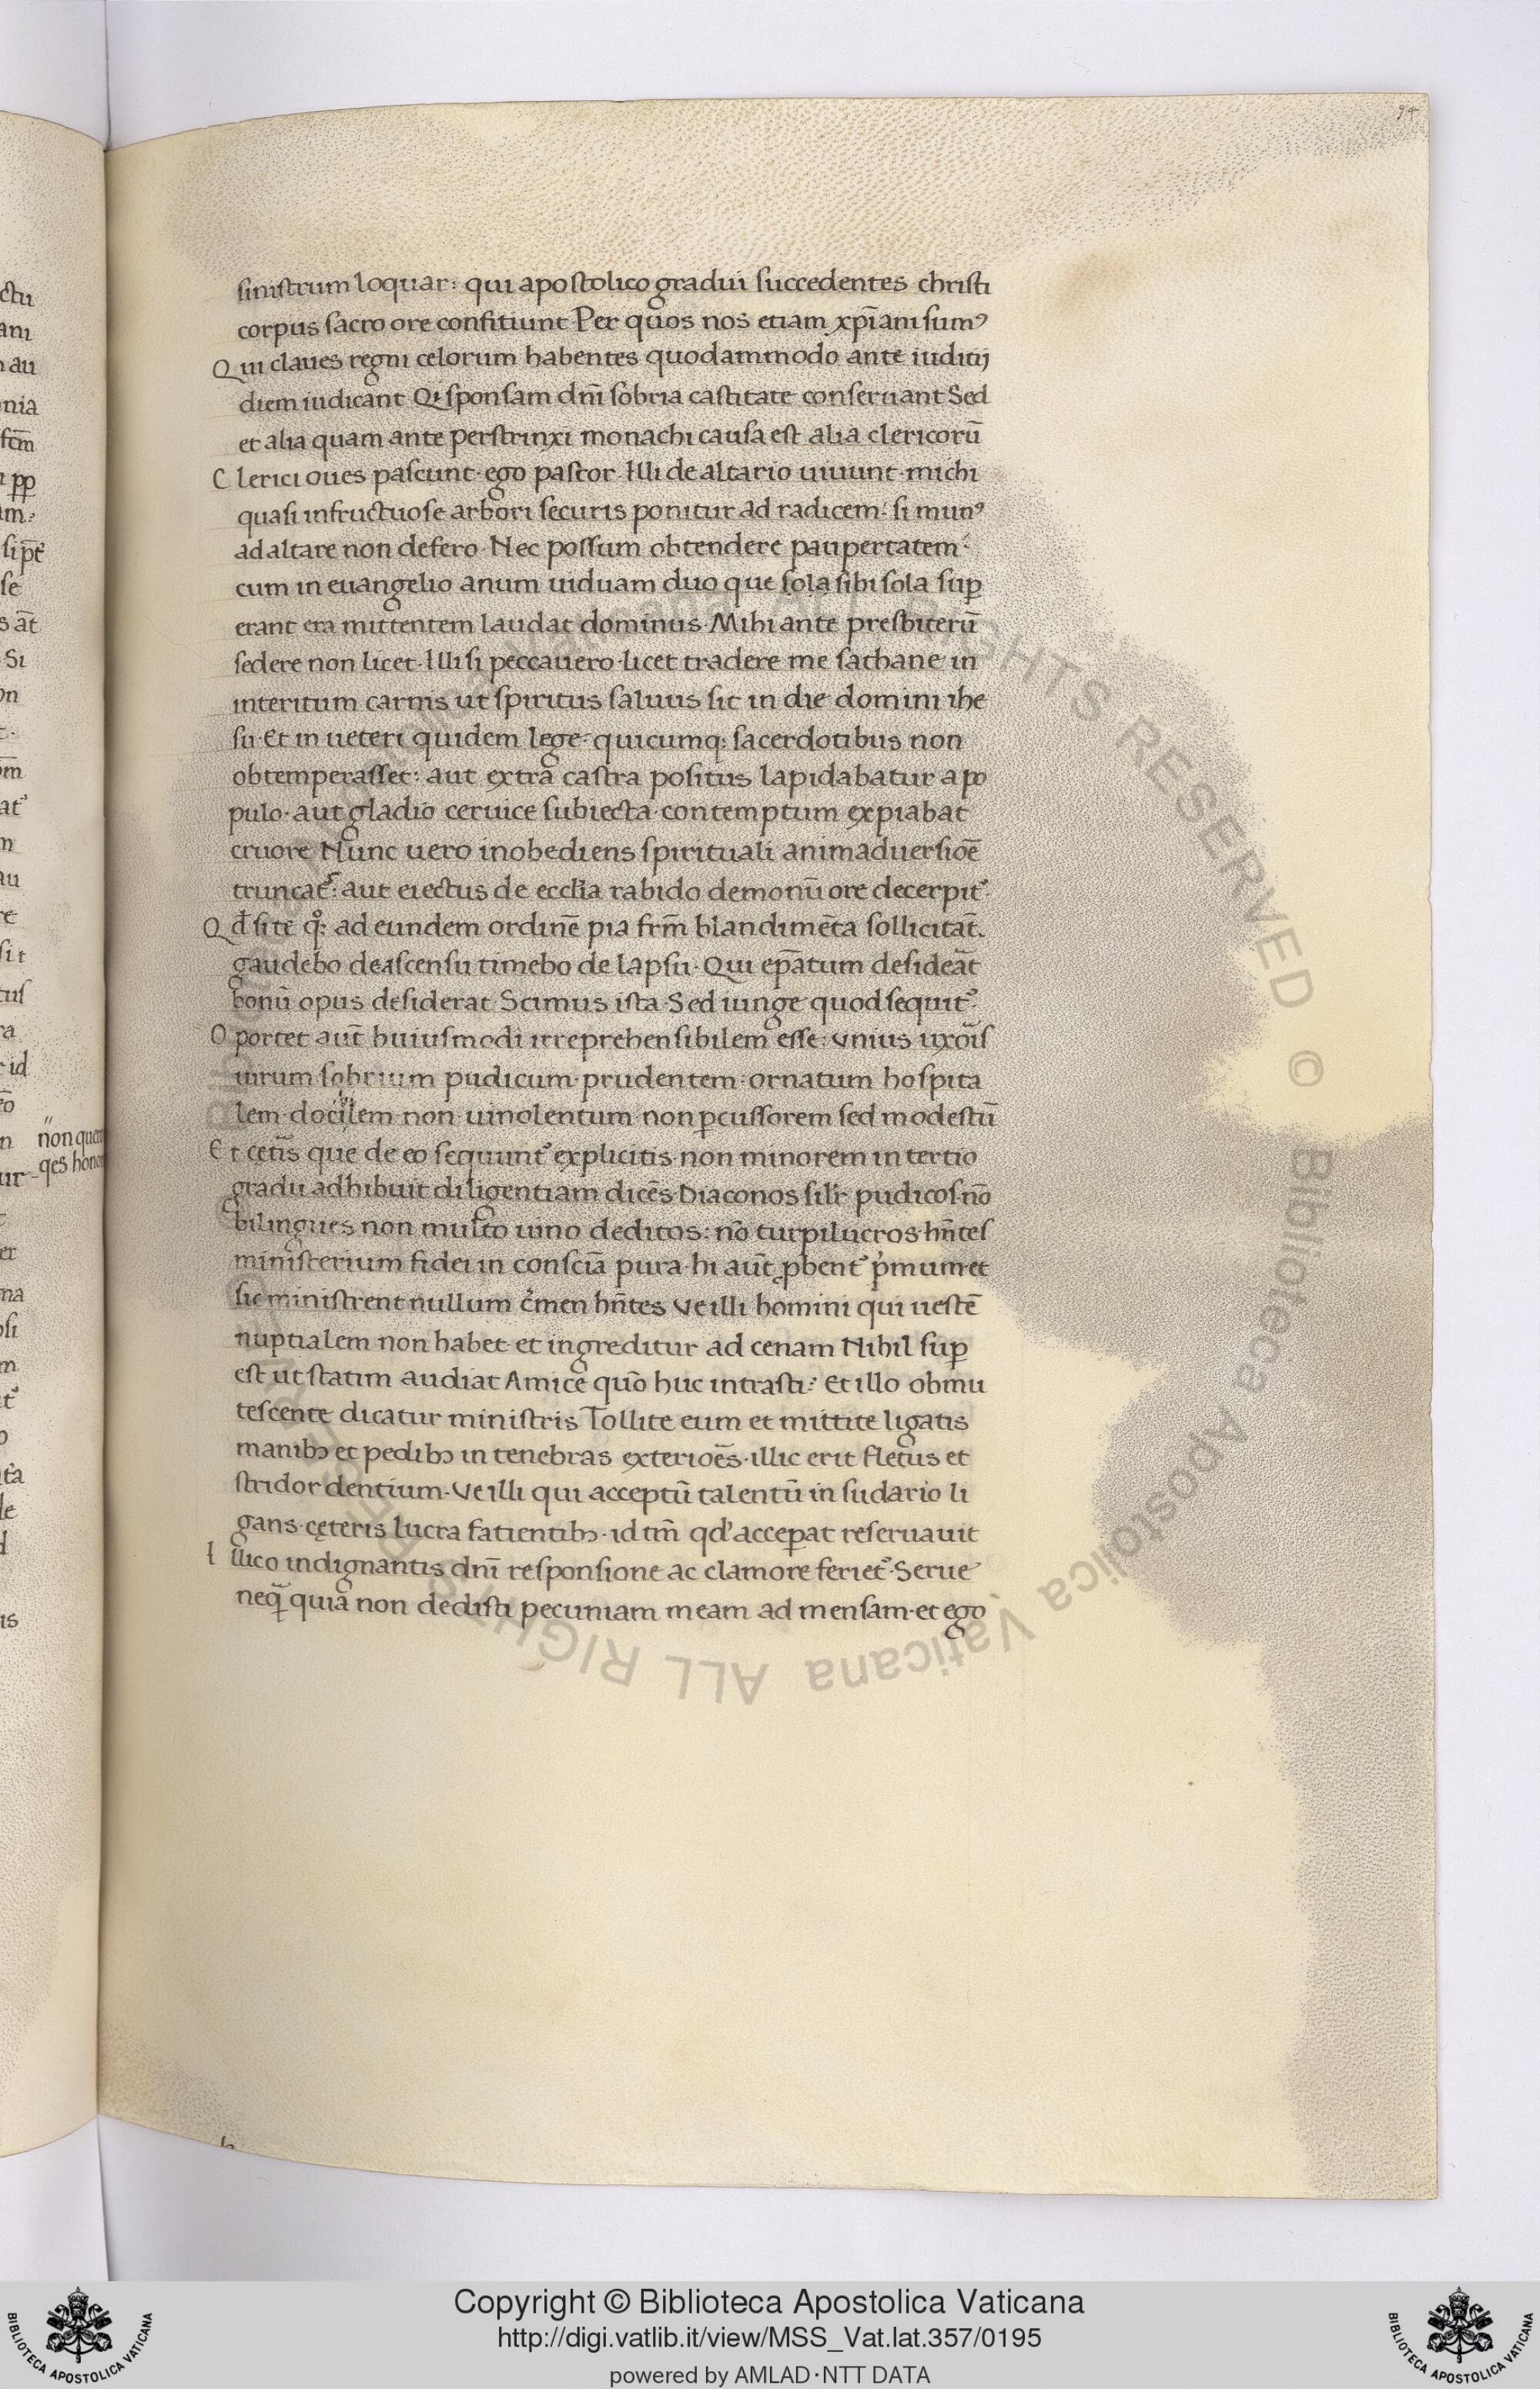 94
sinistrum loquar: qui apostolico gradui succedentes christi
corpus sacro ore confitiunt Per quos nos etiam xp̄iani sumꝰ
Qui claues regni celorum habentes quodammodo ante iuditij
diem iudicant Qi sponsam dn̄i sobria castitate conseruant Sed
et alia quam ante perstrinxi monachi causa est alia clericorū
Clerici oues pascunt· ego pascor· Illi de altario uiuunt· michi
quasi infructuose arbori securis ponitur ad radicem: si munꝰ
ad altare non defero· Nec possum obtendere paupertatem:
cum in euangelio anum uiduam duo que sola sibi sola suꝑ
erant era mittentem laudat dominus· Mihi ante presbiterū
sedere non licet· Illi si peccauero· licet tradere me sathane in
interitum carnis ut spiritus saluus sit in die domini ihe
su· Et in ueteri quidem lege· quicumq: sacerdotibus non
obtemperasset: aut extra castra positus lapidabatur a po
pulo· aut gladio ceruice subiecta· contemptum expiabat
cruore Nunc uero inobediens spirituali animaduersiōe
truncat᷒: aut eiectus de eccl̄ia rabido demonū ore decerpit᷒·
Qd̄ si te qͦ: ad eundem ordinē pia frm̄ blandimēta sollicitāt·
gaudebo de ascensu timebo de lapsu· Qui ep̄atum desideāt
bonū opus desiderat Scimus ista· Sed iunge quod sequit᷒·
Oportet aut̄ huiusmodi irreprehensibilem esse: vnius uxoīs
uirum sobrium pudicum· prudentem· ornatum hospita
lem· docilem non uinolentum· non ꝑcussorem sed modestū
Et cętīs que de eo sequunt᷒ explicitis· non minorem in tertio
gradu adhibuit diligentiam dicēs· Diaconos silr̄ pudicos nō
bilingues non multo uino deditos: nō turpilucros· hn̄tes
ministerium fidei in consciā pura· hi aut̄ ꝓbent᷒ pͥmum· et
sic ministrent nullum cͥmen hn̄tes Ve illi homini qui uestē
nuptialem non habet et ingreditur ad cenam Nihil suꝑ
est ut statim audiat Amice quō huc intrasti: Et illo obmu
tescente dicatur ministris Tollite eum et mittite ligatis
manibꝫ et pedibꝫ in tenebras exterioēs· illic erit fletus et
stridor dentium· Ve illi qui acceptū talentū in sudario li
gans· cęteris lucra fatientibꝫ· id tm̄ qd' acceꝑat reseruauit
Illico indignantis dn̄i responsione ac clamore feriet᷒· Serue
neq̄ quia non dedisti pecuniam meam ad mensam· et ego
ctu
nia
se
Si
id
non quer
qes honor
is
© Biblioteca Apostolica Vaticana ALL RIGHTS RESERVED
Copyright © Biblioteca Apostolica Vaticana
http://digi.vatlib.it/view/MSS_Vat.lat.357/0195
powered by AMLAD·NTT DATA
BIBLIOTECA APOSTOLICA VATICANA
BIBLIOTECA APOSTOLICA VATICANA